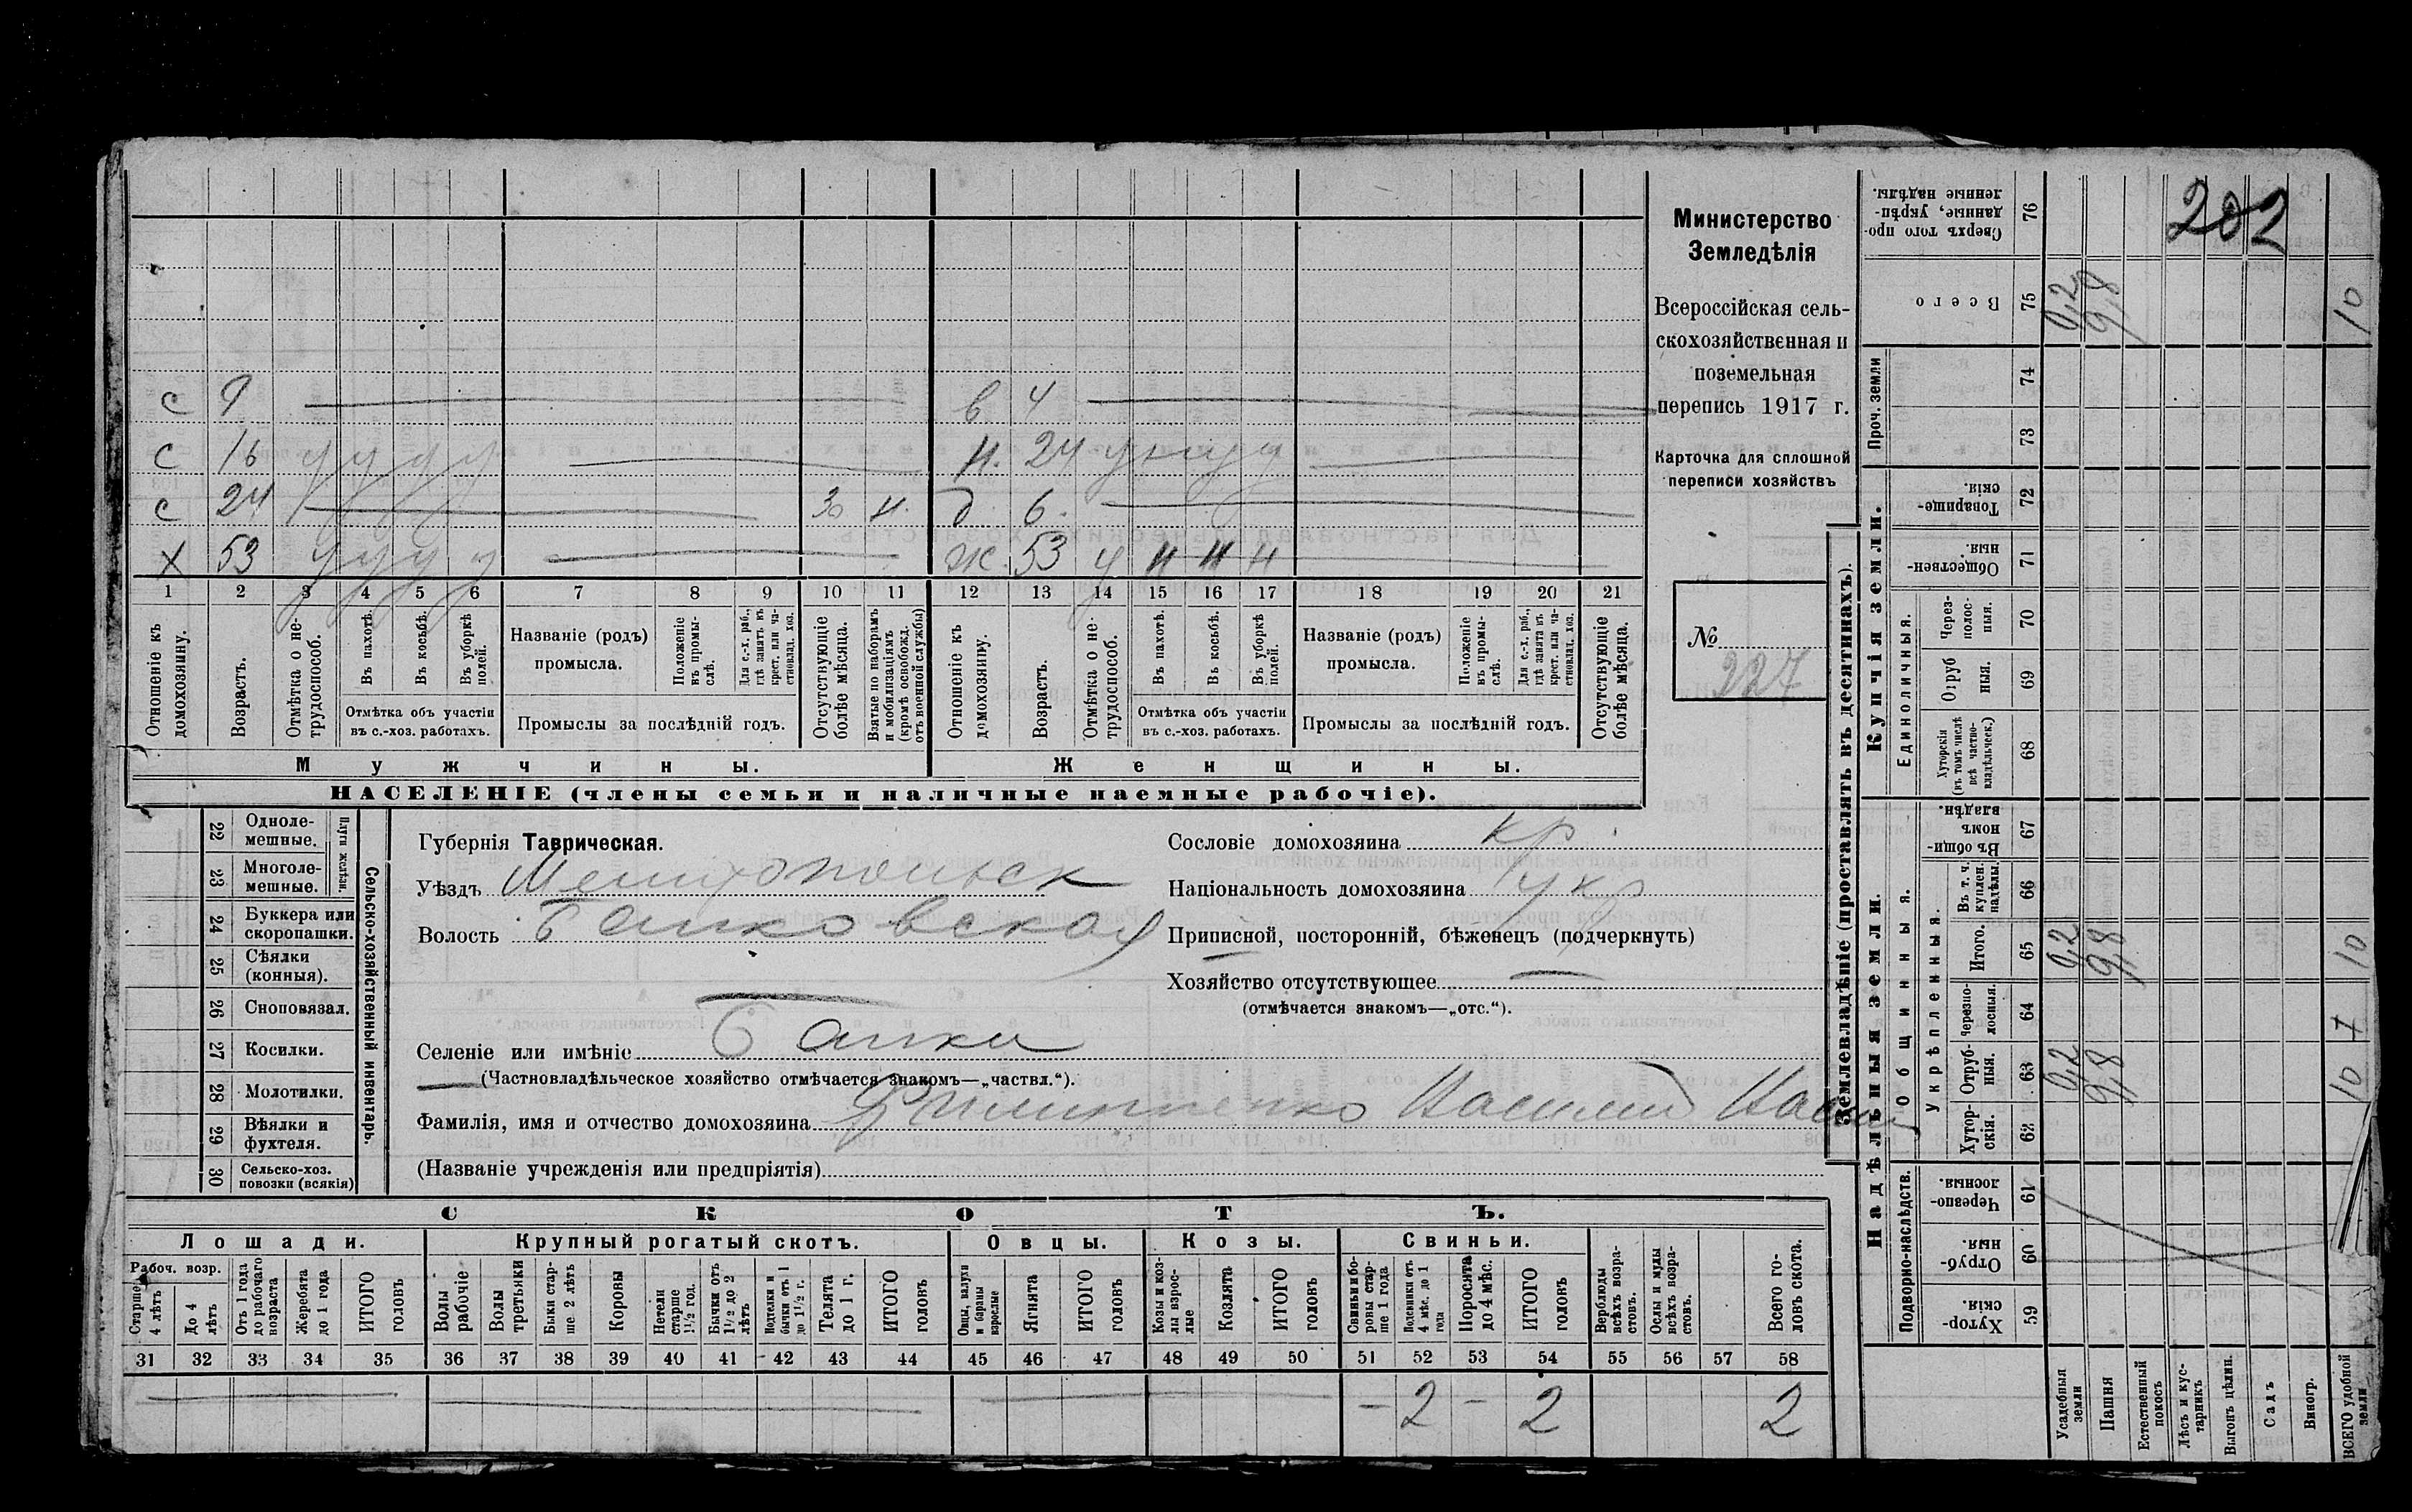 202
Министерство
Земледѣлія
Всероссійская сель-
скохозяйственная и
поземельная
перепись 1917 г.
Карточка для сплошной
переписи хозяйствъ
№
227
с 9 в 4
с 16 н. 24
с 24 30 н. д. 6.
х 53 ж. 53 у н н н
1 2 3 4 5 6 7 8 9 10 11 12 13 14 15 16 17 18 19 20 21
Отношеніе къ домохозяину.
Возрастъ.
Отмѣтка о не-трудоспособ.
Въ пахотѣ.
Въ косьбѣ.
Въ уборкѣ полей.
Отмѣтка объ участіи
въ с.-хоз. работахъ.
Названіе (родъ)
промысла.
Положеніе въ промы-слѣ.
Для с.-х. раб., гдѣ занятъ въ крест. или ча-стновлад. хоз.
Промыслы за послѣдній годъ.
Отсутствующіе болѣе мѣсяца.
Взятые по наборамъ и мобилизаціямъ (кромѣ освобожд. отъ военной службы)
Отношеніе къ домохозяину.
Возрастъ.
Отмѣтка о не-трудоспособ.
Въ пахотѣ.
Въ косьбѣ.
Въ уборкѣ полей.
Отмѣтка объ участіи
въ с.-хоз. работахъ.
Названіе (родъ)
промысла.
Положеніе въ промы-слѣ.
Для с.-х. раб., гдѣ занята въ крест. или ча-стновлад. хоз.
Промыслы за послѣдній годъ.
Отсутствующіе болѣе мѣсяца.
Мужчины.
Женщины.
НАСЕЛЕНІЕ (члены семьи и наличные наемные рабочіе).
22 Одноле-мешные.
23 Многоле-мешные.
Плуги желѣзн.
24 Буккера или скоропашки.
25 Сѣялки (конныя).
26 Сноповязал.
27 Косилки.
28 Молотилки.
29 Вѣялки и фухтеля.
30 Сельско-хоз. повозки (всякія)
Сельско-хозяйственный инвентарь.
Губернія Таврическая.
Уѣздъ Мелитопольск
Волость Балковская
Селеніе или имѣніе Балки
(Частновладѣльческое хозяйство отмѣчается знакомъ—„частвл.“).
Фамилія, имя и отчество домохозяина Филиппенко Василий
(Названіе учрежденія или предпріятія)
Сословіе домохозяина кр.
Національность домохозяина укр
Приписной, посторонній, бѣженецъ (подчеркнуть)
Хозяйство отсутствующее —
(отмѣчается знакомъ—„отс.“).
СКОТЪ.
Лошади.
Крупный рогатый скотъ.
Овцы.
Козы.
Свиньи.
Рабоч. возр.
Старше 4 лѣтъ
До 4 лѣтъ
Отъ 1 года до рабочаго возраста
Жеребята до 1 года
ИТОГО головъ
Волы рабочіе
Волы третьяки
Быки стар-ше 2 лѣтъ
Коровы
Нетели старше 1½ год.
Бычки отъ 1½ до 2 лѣтъ
Подтелки и бычки отъ 1 до 1½ г.
Телята до 1 г.
ИТОГО головъ
Овцы, валухи и бараны взрослые
Ягнята
ИТОГО головъ
Козы и коз-лы взрос-лые
Козлята
ИТОГО головъ
Свиньи и бо-ровы стар-ше 1 года
Подсвинки отъ 4 мѣс. до 1 года
Поросята до 4 мѣс.
ИТОГО головъ
Верблюды всѣхъ возра-стовъ.
Ослы и мулы всѣхъ возра-стовъ.
Всего го-ловъ скота.
31 32 33 34 35 36 37 38 39 40 41 42 43 44 45 46 47 48 49 50 51 52 53 54 55 56 57 58
— 2 — 2 2
Землевладѣніе (проставлять въ десятинахъ).
Купчія земли.
Надѣльныя земли.
Сверхъ того про-данные, укрѣп-ленные надѣлы. 76
Всего 75 0,2 9,8 10
Проч. земли
74
73
Товарище-скія. 72
Обществен-ныя. 71
Единоличныя.
Через-полос-ныя. 70
Отруб-ныя. 69
Хуторскія (въ томъ числѣ всѣ частно-владѣльческ.) 68
Общинныя.
Въ общи-номъ владѣн. 67
Укрѣпленныя.
Въ т. ч. куплен. надѣлы 66
Итого. 65 0,2 9,8 10
Черезпо-лосныя. 64
Отруб-ныя. 63 0,2 9,8 10
Хутор-скія. 62
Подворно-наслѣдств.
Черезпо-лосныя 61
Отруб-ныя. 60
Хутор-скія. 59
Усадебныя земли
Пашня
Естественный покосъ
Лѣсъ и кус-тарникъ
Выгонъ цѣлин.
Садъ
Виногр.
ВСЕГО удобной земли